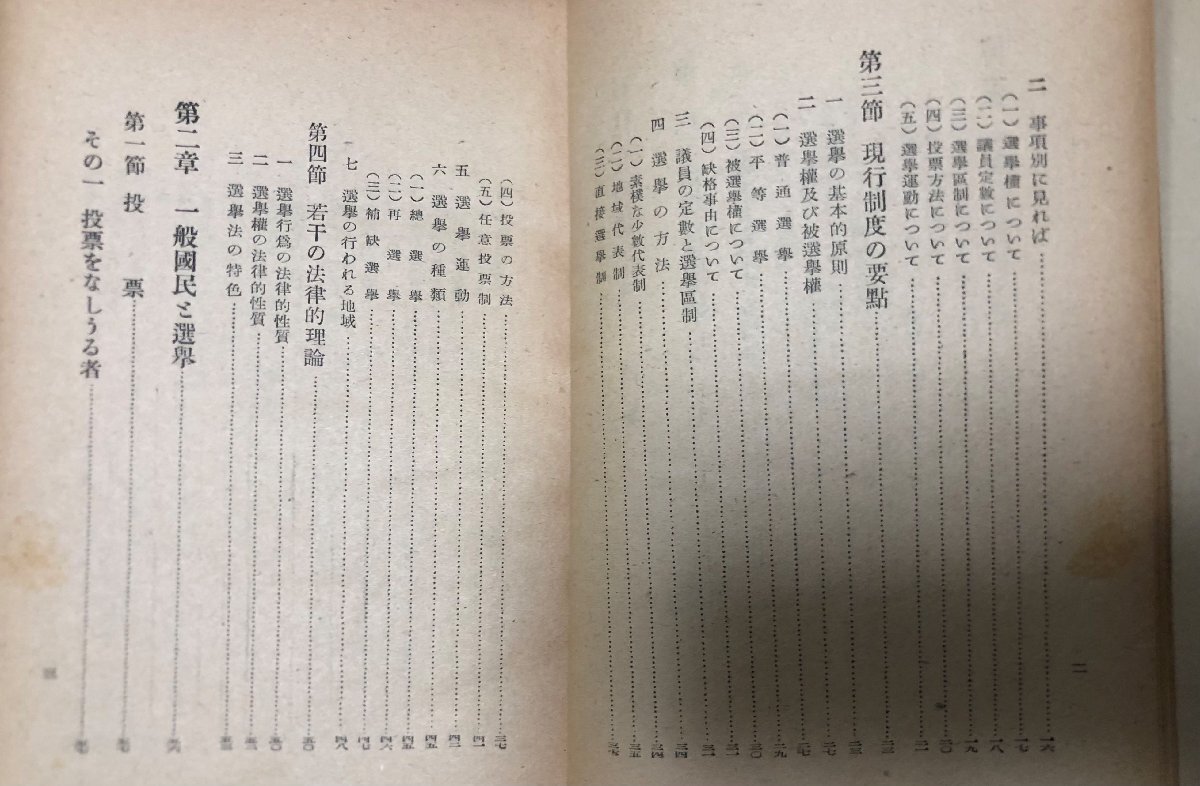 二 事項別に見れば……一六
(一)選擧權について……一七
(二)議員定數について……一八
(三)選擧區制について……一九
(四)投票方法について……二〇
(五)選擧運動について……二一
第三節 現行制度の要點……
一 選擧の基本的原則……
二 選擧權及び被選擧權……二七
(一)普通選擧……二九
(二)平等選擧……三〇
(三)被選擧權について……三一
(四)缺格事由について……三二
三 議員の定數と選擧區制……三四
四 選擧の方法……三四
(一)素樸な少數代表制……三五
(二)地域代表制……三六
(三)直接選擧制……
二
(四)投票の方法……三七
(五)任意投票制……四一
五 選擧運動……四二
六 選擧の種類……四五
(一)總選擧……四五
(二)再選擧……四六
(三)補缺選擧……四七
七 選擧の行われる地域……四八
第四節 若干の法律的理論……五〇
一 選擧行爲の法律的性質……五〇
二 選擧權の法律的性質……
三 選擧法の特色……
第二章 一般國民と選擧……
第一節 投票……
その一 投票をなしうる者……
三